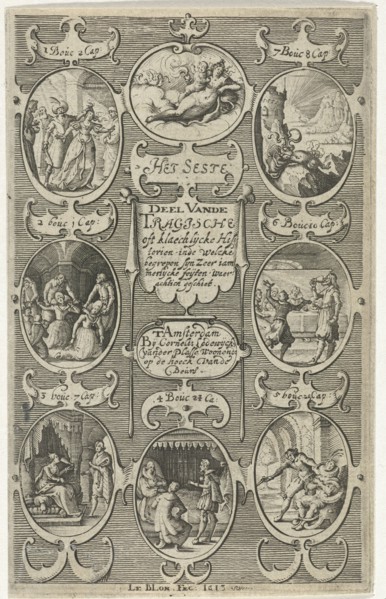 1 Boúc 2 Cap.
7 Boúc 8 Cap
HET SESTE
DEEL VANDE
TRAGISCHE
oft klaechlycke His
torien inde Welcke
begrepen syn Zeer iam
merlycke feyten waer
achtich geschiet.
2 boúc 1 Cap:
6 Boúc 10 Cap:
TAmsterdam
By Cornelis lodewycksz
vander Plasse Woonende
op de hoeck Vande
Beurs.
3 boúc 7 Cap:
4 Boúc Ca:
5 boúc Cap:
LE BLON. FEC. 1613